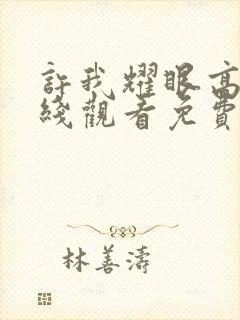 許我耀眼高
綫觀看免費
林善濤